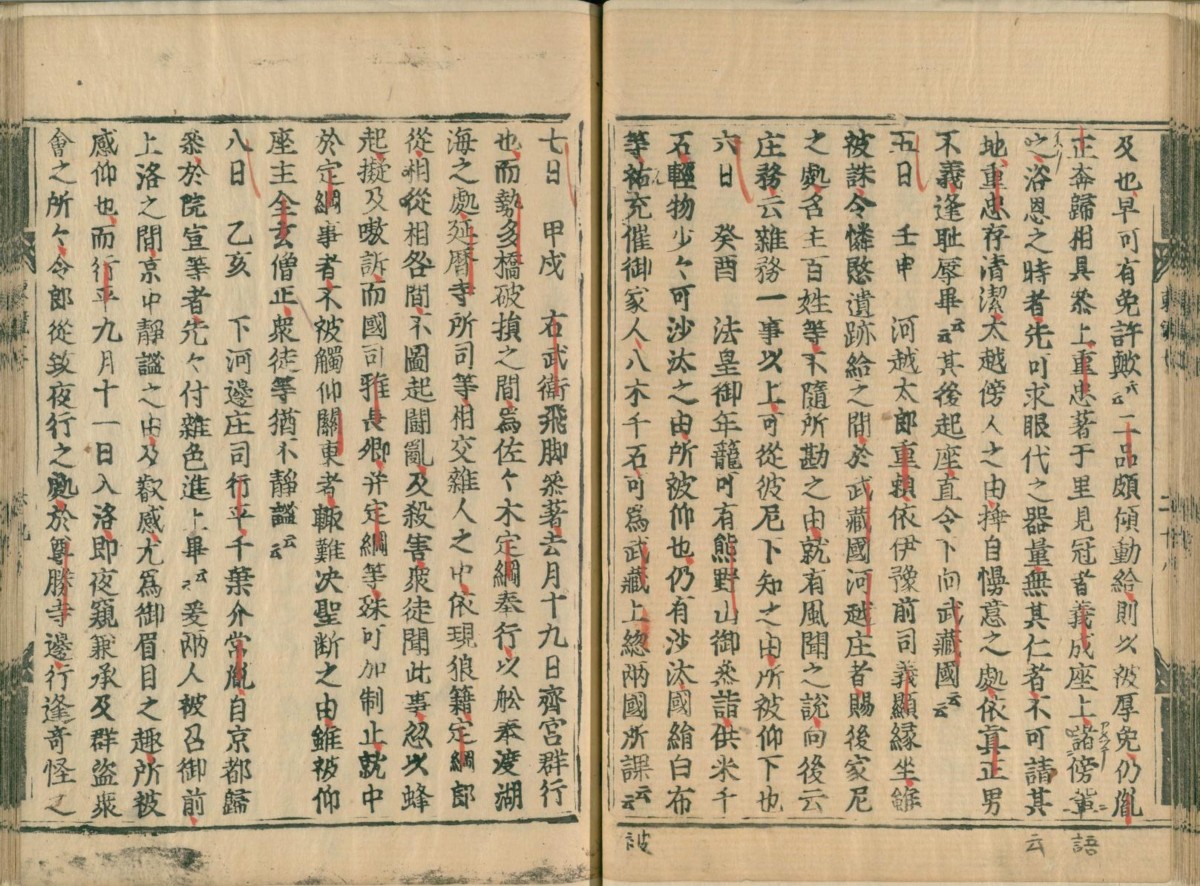 及也、早可有免許歟云云、二品頗傾動給、則以被厚免、仍胤
正奔歸相具叅上、重忠著于里見冠者義成座上、諸傍輩ニ
云、浴恩之時者、先可求眼代之器量、無其仁者、不可請其
地、重忠存清潔、太越傍人之由、挿自慢意之処、依真正男
不義、逢耻辱畢云云、其後起座、直令下向武藏國云云
五日　壬申　河越太郎重頼、依伊豫前司義顯縁坐、雖
被誅、令憐愍遺跡給之間、於武藏國河越庄者、賜後家尼
之處、名主百姓等、不隨所勘之由、就有風聞之説、向後云
庄務、云雜務、一事以上、可從彼尼下知之由、所被仰下也
六日　癸酉　法皇御年籠可有熊野山御叅詣、供米千
石、輕物少々可沙汰之由、所被仰也、仍有沙汰、國絹白布
等、祐充催御家人、八木千石、可爲武藏上總兩國所課云云
語
云
被
七日　甲戌　右武衛飛脚叅著、去月十九日、齊宮群行
也、而勢多橋破損之間、爲佐々木定綱奉行、以舩奉渡湖
海之處、延暦寺所司等、相交雜人之中、依現狼籍、定綱郎
從相從相各間、不圖起鬪亂、及殺害、衆徒聞此事、忽以蜂
起、擬及嗷訴、而國司雅長卿、并定綱等殊可加制止、就中
於定綱事者、不被觸仰關東者、輙難決聖断之由、雖被仰
座主全玄僧正、衆徒等猶不靜謐云云
八日　乙亥　下河邊庄司行平、千葉介常胤、自京都歸
叅、於院宣等者、先々付雜色進上畢云云、爰兩人被召御前、
上洛之間、京中靜謐之由、及歡感、尤爲御眉目之趣、所被
感仰也、而行平九月十一日入洛、即夜窺兼承及群盗衆
會之所々、令郎從致夜行之處、於尊勝寺邊、行逢奇怪之